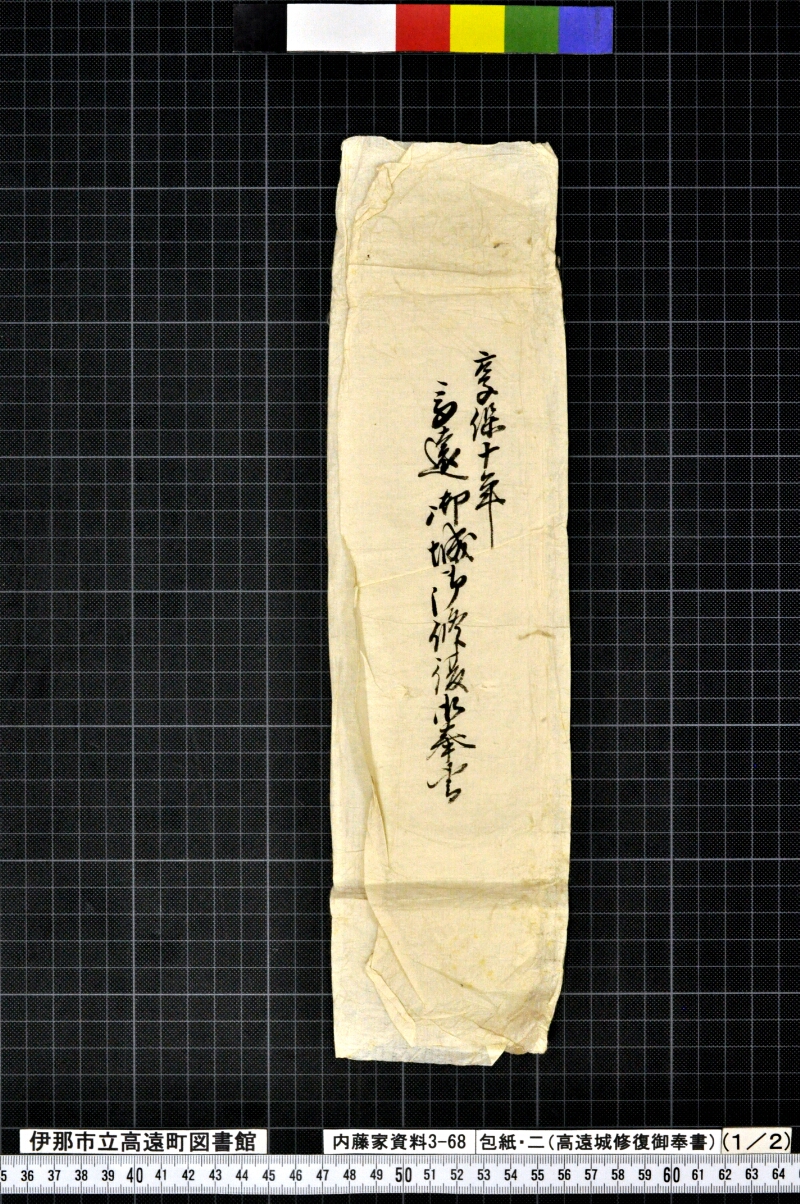 享保十年
高遠御城御修復御奉書
伊那市立高遠町図書館
内藤家資料3-68
包紙・二(高遠城修復御奉書)
(1/2)
5 36 37 38 39 40 41 42 43 44 45 46 47 48 49 50 51 52 53 54 55 56 57 58 59 60 61 62 63 64